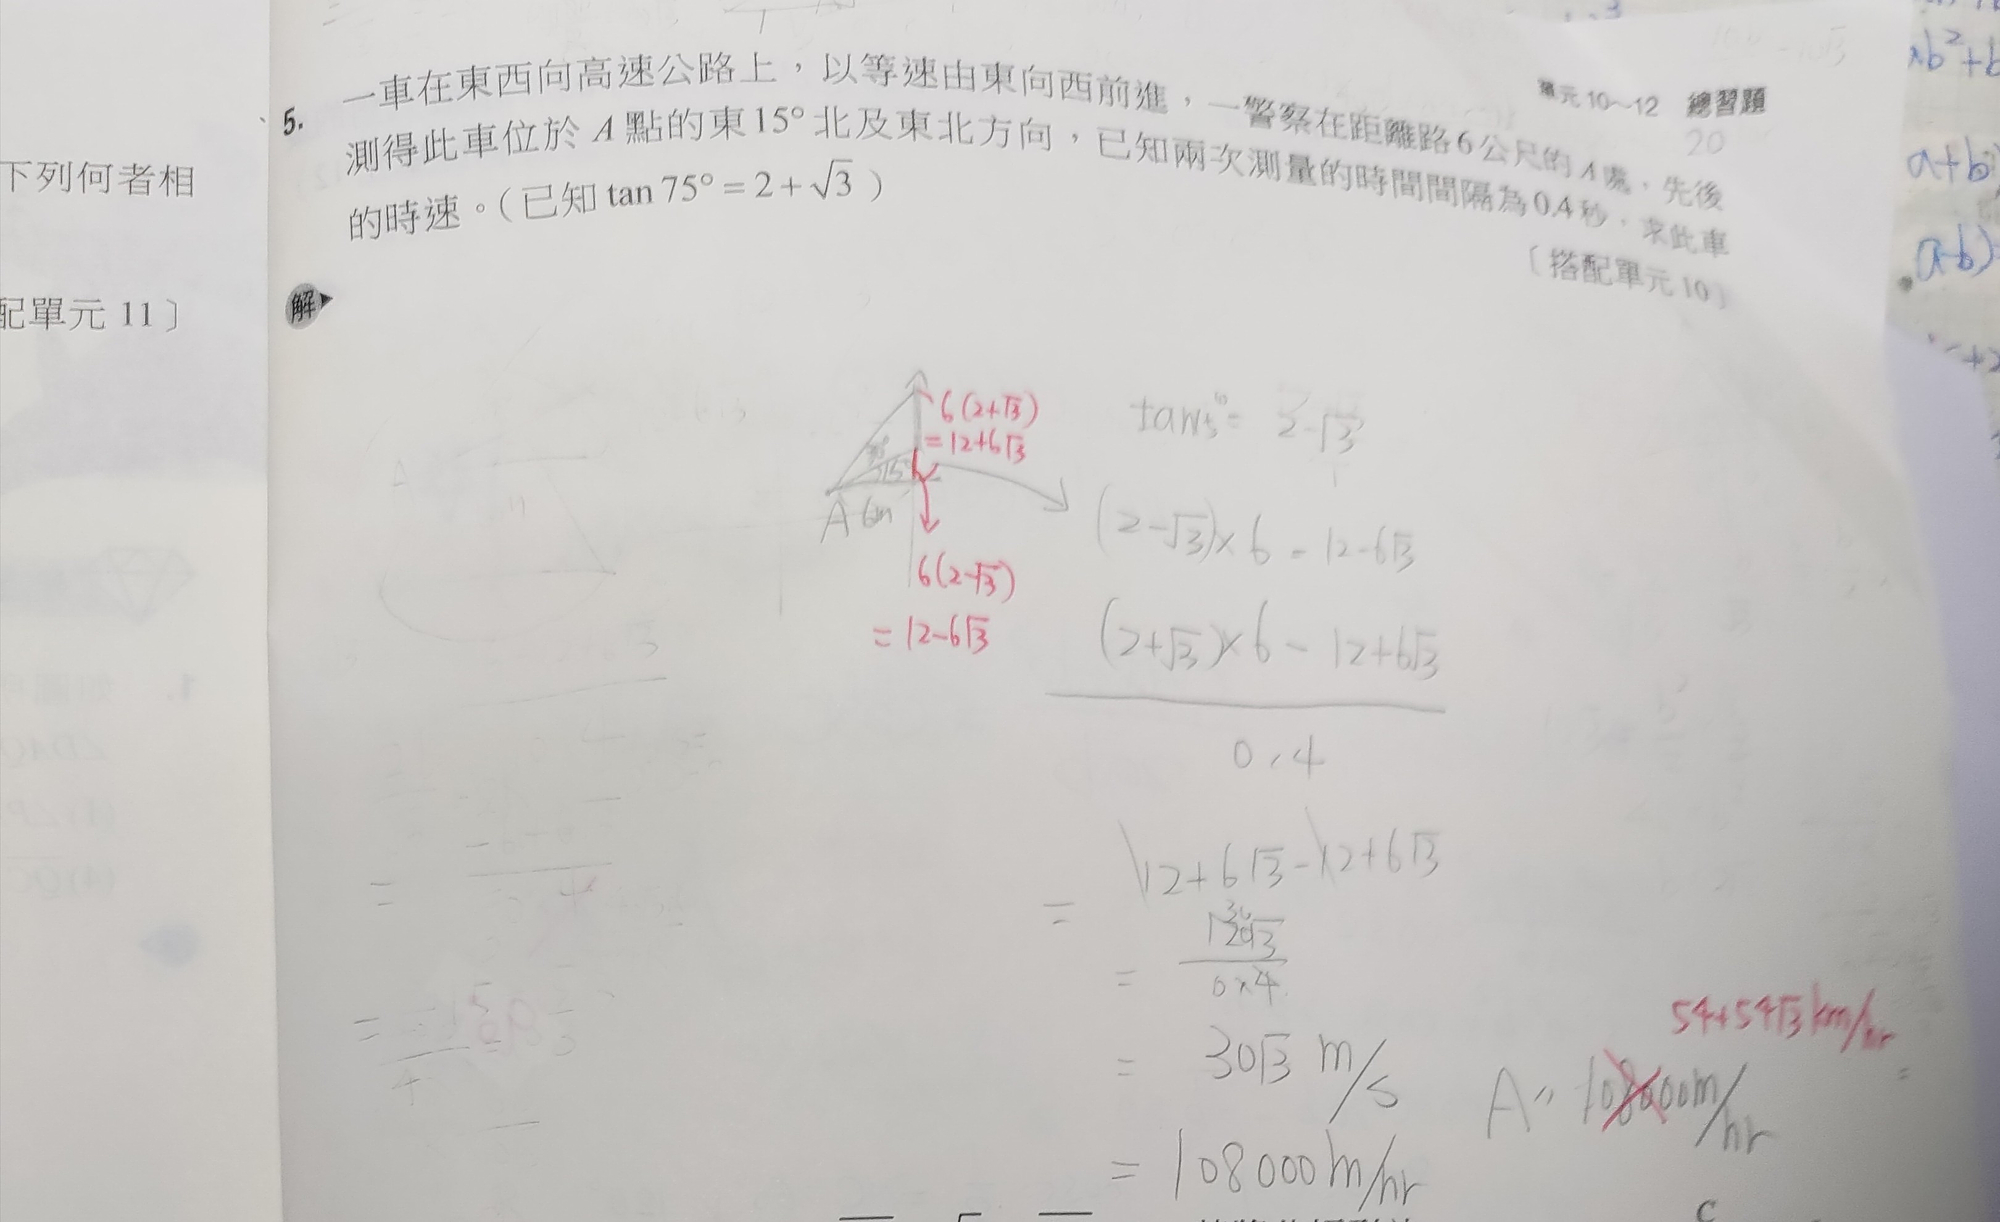 單元10～12 總習題
20
5. 一車在東西向高速公路上，以等速由東向西前進，一警察在距離路6公尺的A處，先後
測得此車位於A點的東15°北及東北方向，已知兩次測量的時間間隔為0.4秒，求此車
的時速。（已知 tan 75° = 2 + √3 ）
〔搭配單元10〕
下列何者相
配單元 11〕
解
6(2+√3)
=12+6√3
15°
A 6m
6(2-√3)
= 12-6√3
tan15° = 2-√3
(2-√3)×6 = 12-6√3
(2+√3)×6 - 12+6√3
0.4
= 12+6√3-12+6√3
=
0.4
= 30√3 m/s
= 108000m/hr
54+54√3 km/hr
A:108000m/hr
ab²+b
a+b
a-b)